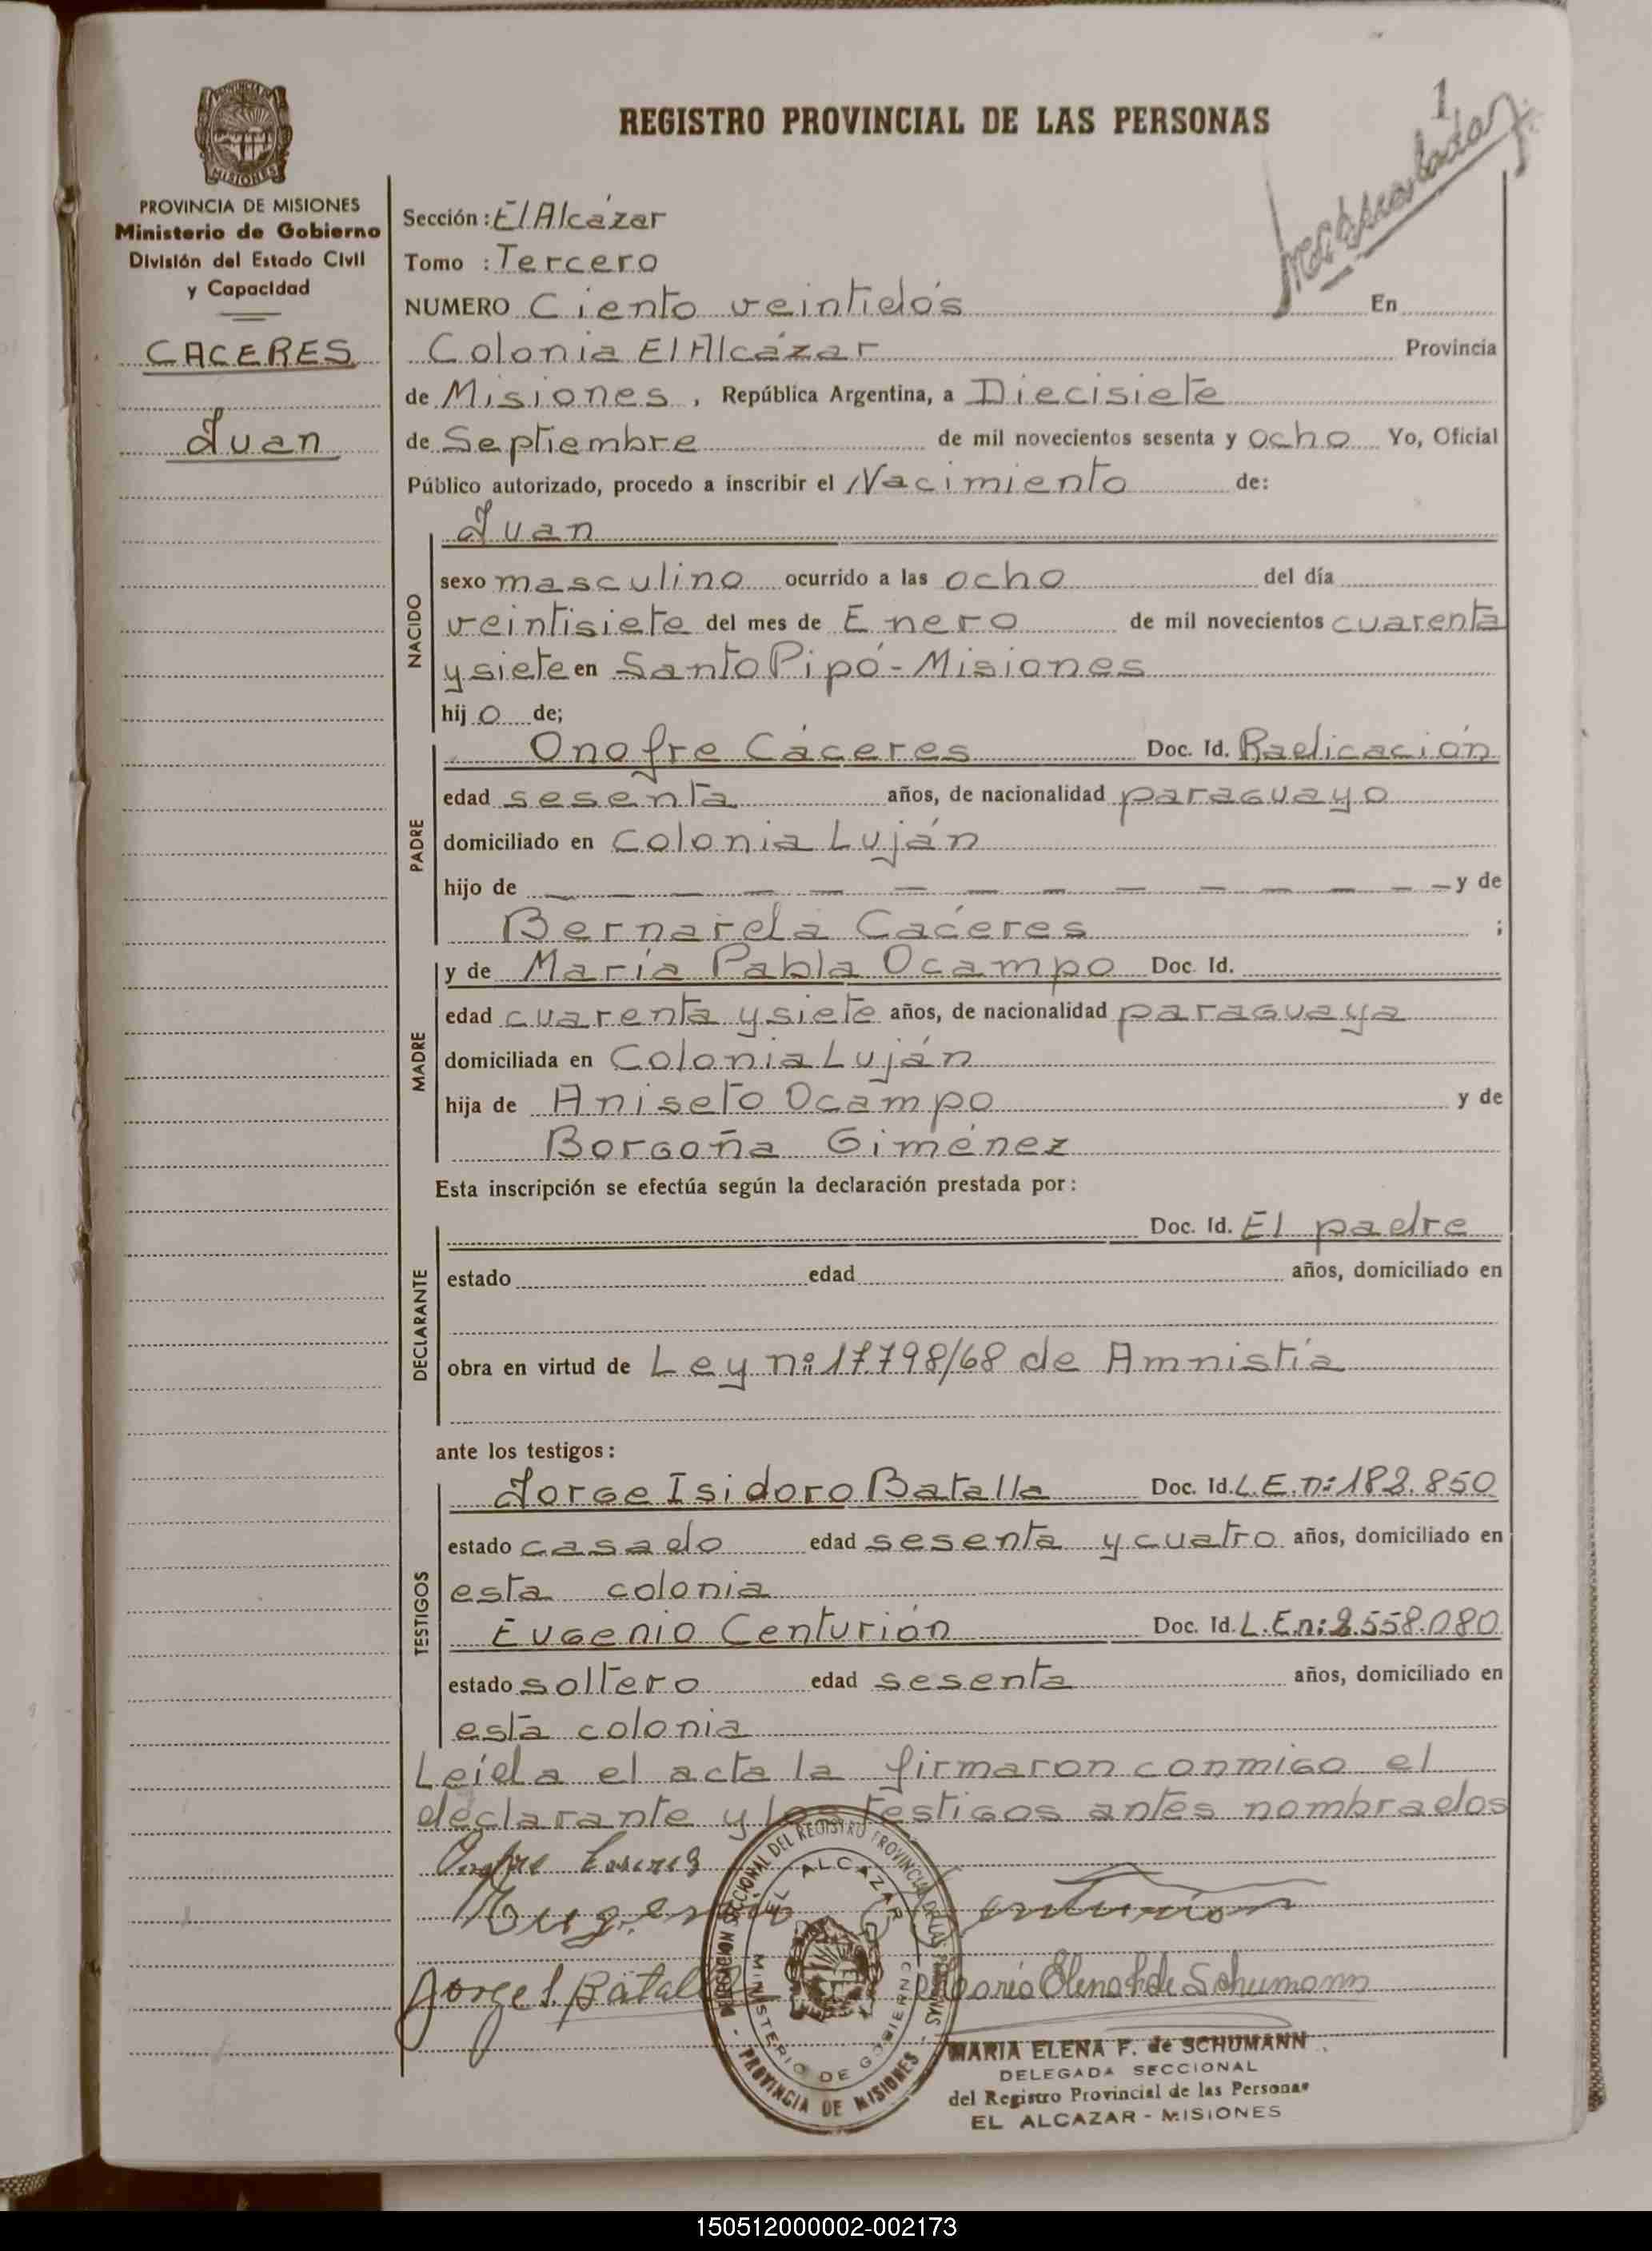 REGISTRO PROVINCIAL DE LAS PERSONAS
1
MISIONES
PROVINCIA DE MISIONES
Ministerio de Gobierno
División del Estado Civil
y Capacidad
CACERES
Juan
Sección: El Alcázar
Tomo : Tercero
NUMERO Ciento veintidós En
Colonia El Alcázar Provincia
de Misiones, República Argentina, a Diecisiete
de Septiembre de mil novecientos sesenta y ocho Yo, Oficial
Público autorizado, procedo a inscribir el Nacimiento de:
NACIDO
Juan
sexo masculino ocurrido a las ocho del día
veintisiete del mes de Enero de mil novecientos cuarenta
y siete en Santo Pipó - Misiones
hijo de;
PADRE
Onofre Cáceres Doc. Id. Radicación
edad sesenta años, de nacionalidad paraguayo
domiciliado en Colonia Luján
hijo de — — — — — — — — — — — — y de
Bernarda Cáceres ;
MADRE
y de María Pabla Ocampo Doc. Id.
edad cuarenta y siete años, de nacionalidad paraguaya
domiciliada en Colonia Luján
hija de Aniseto Ocampo y de
Borgoña Giménez
Esta inscripción se efectúa según la declaración prestada por:
DECLARANTE
Doc. Id. El padre
estado edad años, domiciliado en
obra en virtud de Ley nº 17.798/68 de Amnistía
ante los testigos:
TESTIGOS
Jorge Isidoro Batalla Doc. Id. L.E.n: 182.850
estado casado edad sesenta y cuatro años, domiciliado en
esta colonia
Eugenio Centurión Doc. Id. L.E.n: 2.558.080
estado soltero edad sesenta años, domiciliado en
esta colonia
Leída el acta la firmaron conmigo el
declarante y los testigos antes nombrados
Onofre Caceres
Eugenio Centurion
Jorge I. Batalla María Elena F. de Schumann
DELEGACION SECCIONAL DEL REGISTRO PROVINCIAL DE LAS PERSONAS - PROVINCIA DE MISIONES -
EL ALCAZAR
MINISTERIO DE GOBIERNO
MARIA ELENA F. de SCHUMANN
DELEGADA SECCIONAL
del Registro Provincial de las Personas
EL ALCAZAR - MISIONES
150512000002-002173